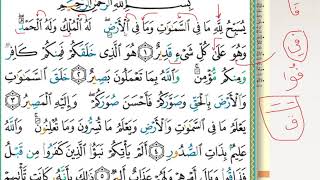 بِسْمِ اللَّهِ الرَّحْمَٰنِ الرَّحِيمِ
يُسَبِّحُ لِلَّهِ مَا فِي السَّمَٰوَٰتِ وَمَا فِي الْأَرْضِ ۖ لَهُ الْمُلْكُ وَلَهُ الْحَمْدُ ۖ
وَهُوَ عَلَىٰ كُلِّ شَيْءٍ قَدِيرٌ ١ هُوَ الَّذِي خَلَقَكُمْ فَمِنكُمْ كَافِرٌ
وَمِنكُم مُّؤْمِنٌ ۚ وَاللَّهُ بِمَا تَعْمَلُونَ بَصِيرٌ ٢ خَلَقَ السَّمَٰوَٰتِ
وَالْأَرْضَ بِالْحَقِّ وَصَوَّرَكُمْ فَأَحْسَنَ صُوَرَكُمْ ۖ وَإِلَيْهِ الْمَصِيرُ ٣
يَعْلَمُ مَا فِي السَّمَٰوَٰتِ وَالْأَرْضِ وَيَعْلَمُ مَا تُسِرُّونَ وَمَا تُعْلِنُونَ ۚ وَاللَّهُ
عَلِيمٌ بِذَاتِ الصُّدُورِ ٤ أَلَمْ يَأْتِكُمْ نَبَؤُا الَّذِينَ كَفَرُوا مِن قَبْلُ
فَذَاقُوا وَبَالَ أَمْرِهِمْ وَلَهُمْ عَذَابٌ أَلِيمٌ ٥ ذَٰلِكَ بِأَنَّهُ كَانَت تَّأْتِيهِمْ
فَا
فِي
فُوا